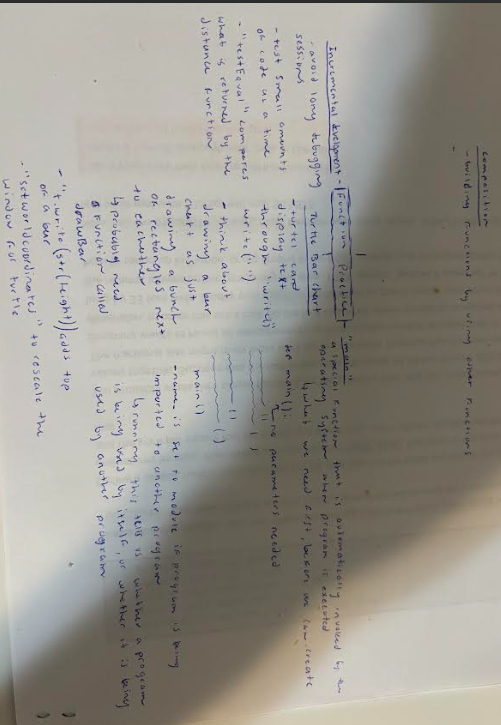 composition
- building functions by using other functions
-
Function Practice
Incremental development -
- avoid long debugging
sessions
- test small amounts
of code at a time
- "testEqual" compares
what is returned by the
distance function
Turtle Bar Chart
- turtles can
display text
through "write()"
write(" ")
- think about
drawing a bar
chart as just
drawing a bunch
of rectangles next
to eachother
↳ probably need
a function called
drawBar
- "t.write(str(height)) adds top
of a bar
- "setworldcoordinates" to rescale the
window for turtle
- "main"
a special function that is automatically invoked by an
operating system when program is executed
↳ what we need first, before we can create
def main():
no parameters needed
main()
-name- is set to module if program is being
imported to another program
↳ running this tells us whether a program
is being used by itself, or whether it is being
used by another program